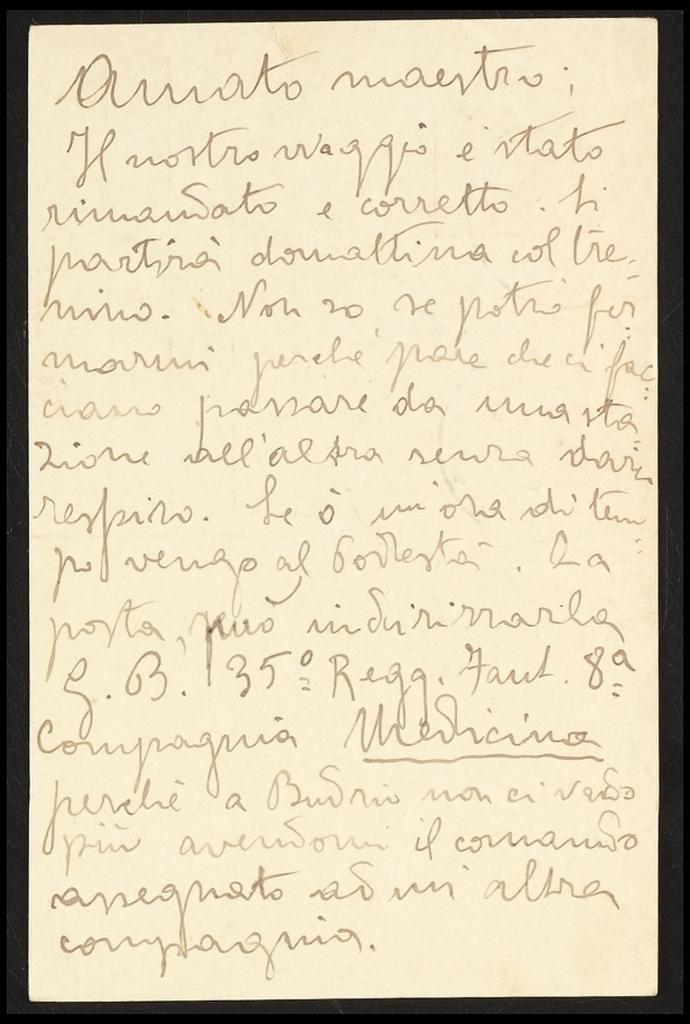 Amato maestro;
Il nostro viaggio è stato
rimandato e corretto. Si
partirà domattina col tre-
nino. Non so se potrò fer-
marmi perchè pare che ci fac-
ciano passare da una sta-
zione all'altra senza darci
respiro. Se ò un'ora di tem-
po vengo al Podestà. La
posta, può indirizzarla
G. B. 35º Regg. Fant. 8ª
Compagnia Medicina
perchè a Budrio non ci vado
più avendomi il comando
assegnato ad un altra
compagnia.